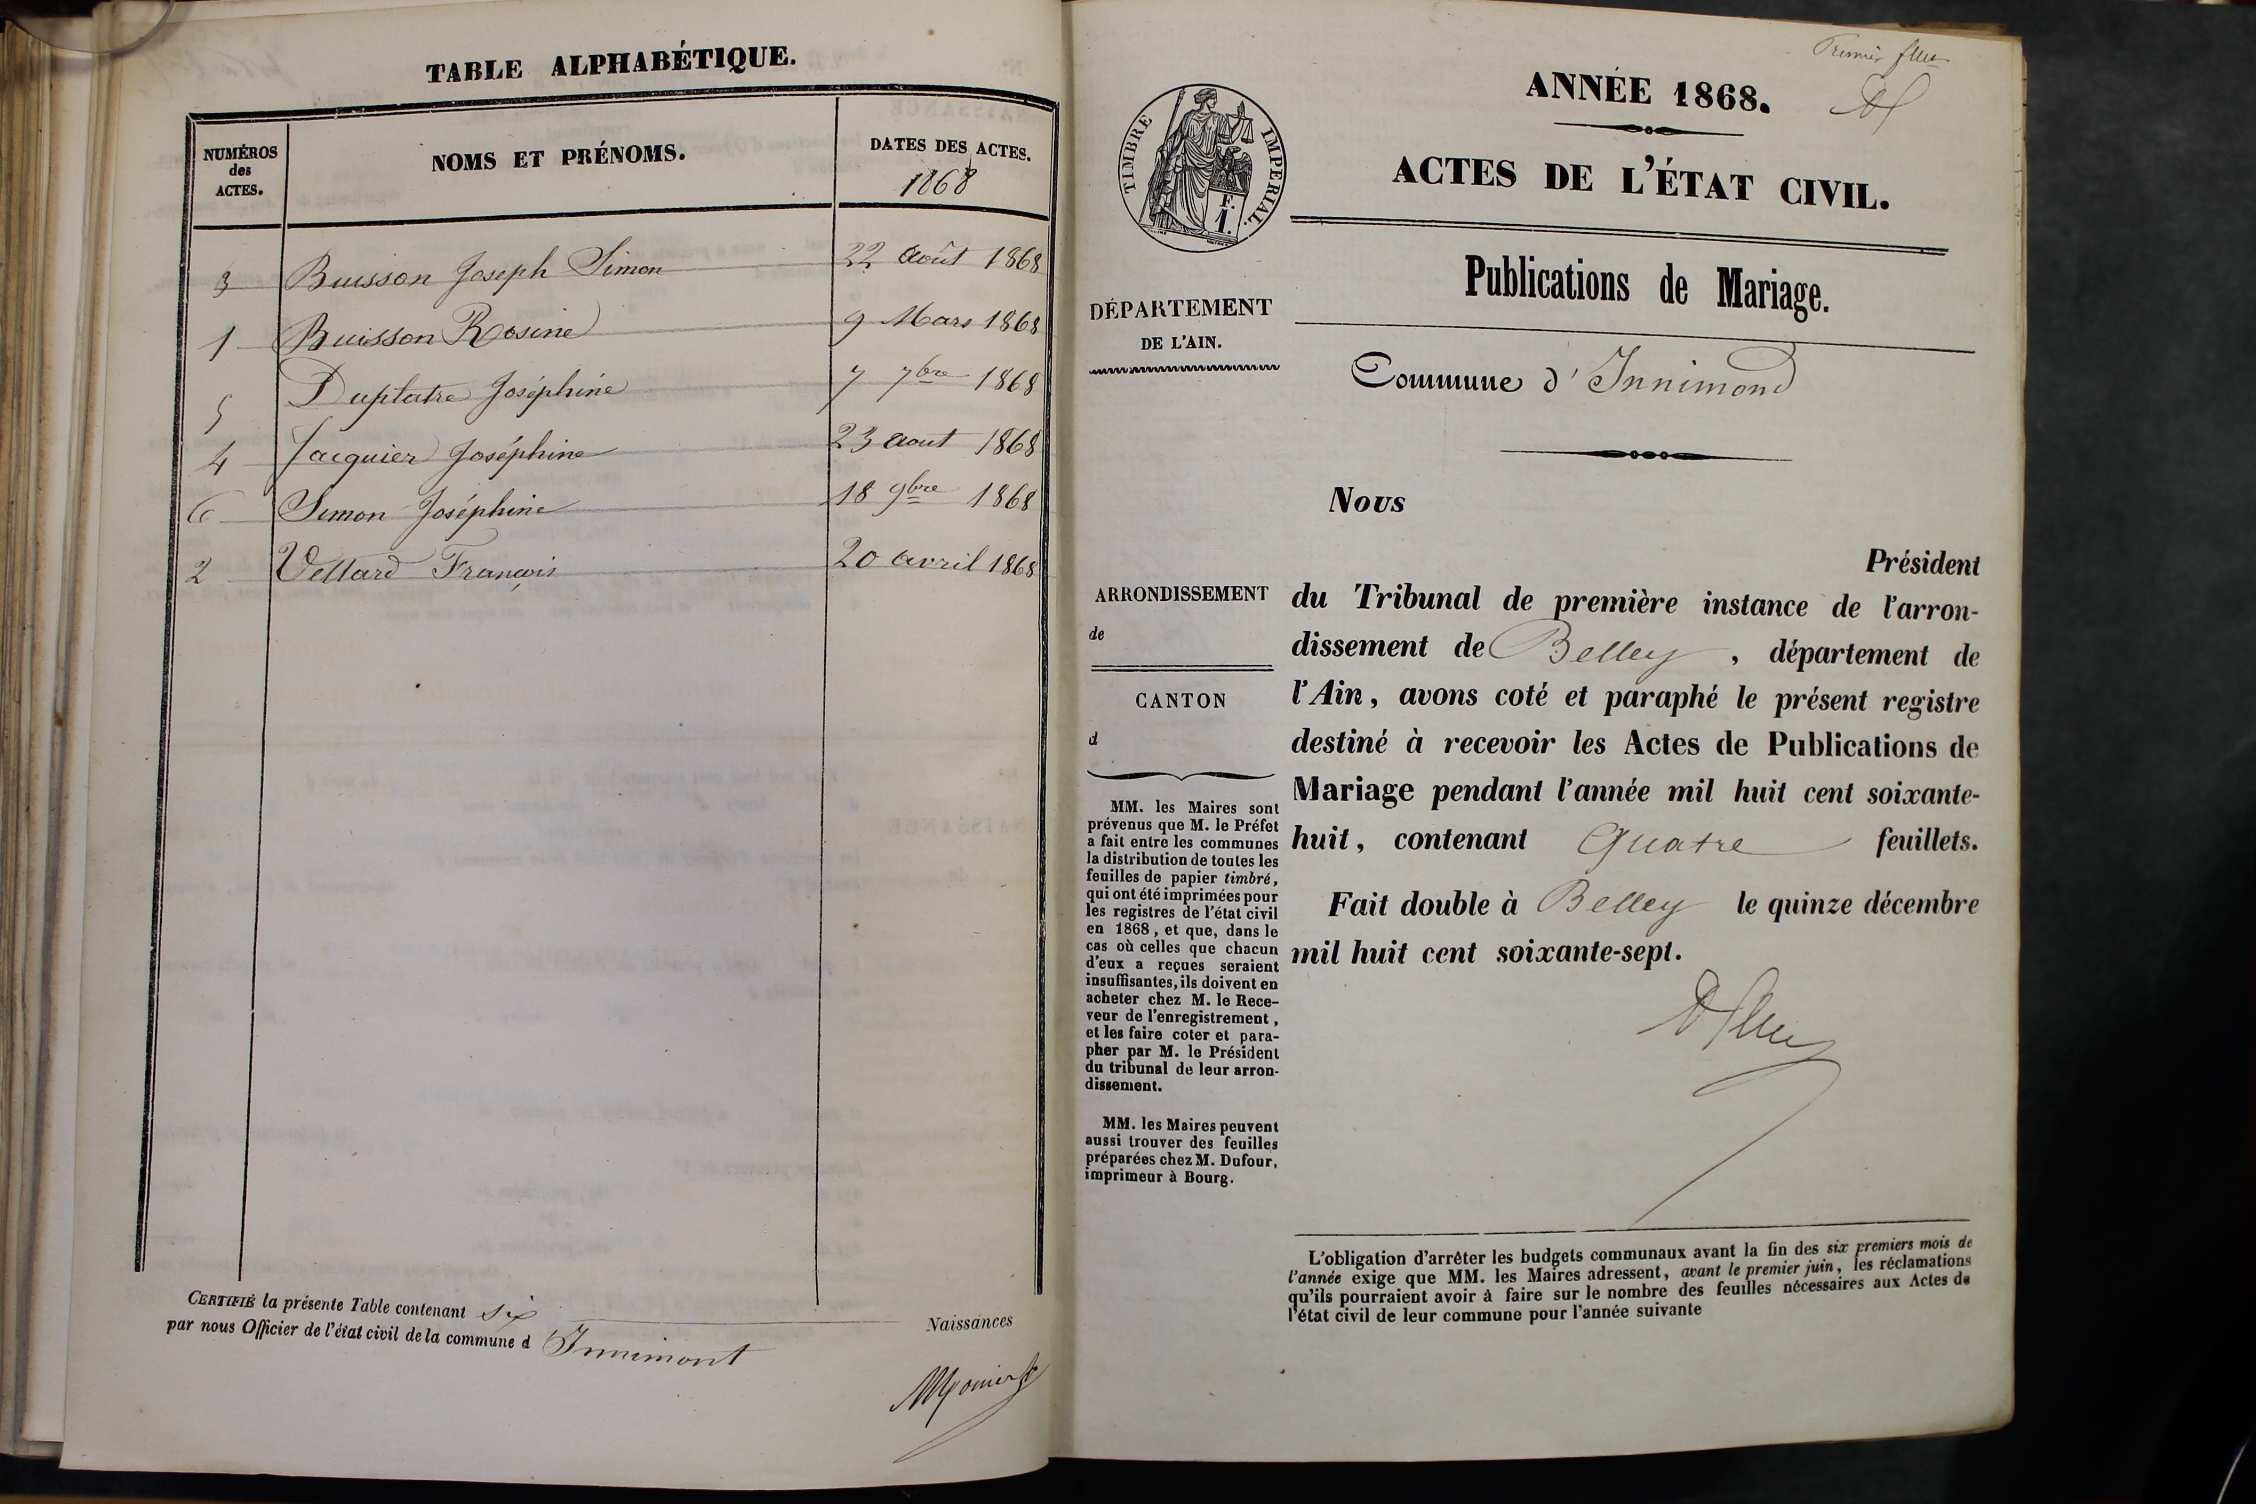 TABLE ALPHABÉTIQUE.
NUMÉROS
des
ACTES.
NOMS ET PRÉNOMS.
DATES DES ACTES.
1868
3 Buisson Joseph Simon 22 août 1868
1 Buisson Rosine 9 Mars 1868
5 Duplatre Joséphine 7 7bre 1868
4 Jacquier Joséphine 23 aout 1868
6 Simon Joséphine 18 9bre 1868
2 Vettard François 20 avril 1868
CERTIFIÉ la présente Table contenant six Naissances
par nous Officier de l'état civil de la commune d Innimont
Premier
ANNÉE 1868.
ACTES DE L'ÉTAT CIVIL.
TIMBRE IMPERIAL.
F.
1.
Publications de Mariage.
Commune d'Innimond
DÉPARTEMENT
DE L'AIN.
ARRONDISSEMENT
de
CANTON
d
MM. les Maires sont
prévenus que M. le Préfet
a fait entre les communes
la distribution de toutes les
feuilles de papier timbré,
qui ont été imprimées pour
les registres de l'état civil
en 1868, et que, dans le
cas où celles que chacun
d'eux a reçues seraient
insuffisantes, ils doivent en
acheter chez M. le Rece-
veur de l'enregistrement,
et les faire coter et para-
pher par M. le Président
du tribunal de leur arron-
dissement.
MM. les Maires peuvent
aussi trouver des feuilles
préparées chez M. Dufour,
imprimeur à Bourg.
Nous
Président
du Tribunal de première instance de l'arron-
dissement de Belley, département de
l'Ain, avons coté et paraphé le présent registre
destiné à recevoir les Actes de Publications de
Mariage pendant l'année mil huit cent soixante-
huit, contenant Quatre feuillets.
Fait double à Belley le quinze décembre
mil huit cent soixante-sept.
L'obligation d'arrêter les budgets communaux avant la fin des six premiers mois de
l'année exige que MM. les Maires adressent, avant le premier juin, les réclamations
qu'ils pourraient avoir à faire sur le nombre des feuilles nécessaires aux Actes de
l'état civil de leur commune pour l'année suivante